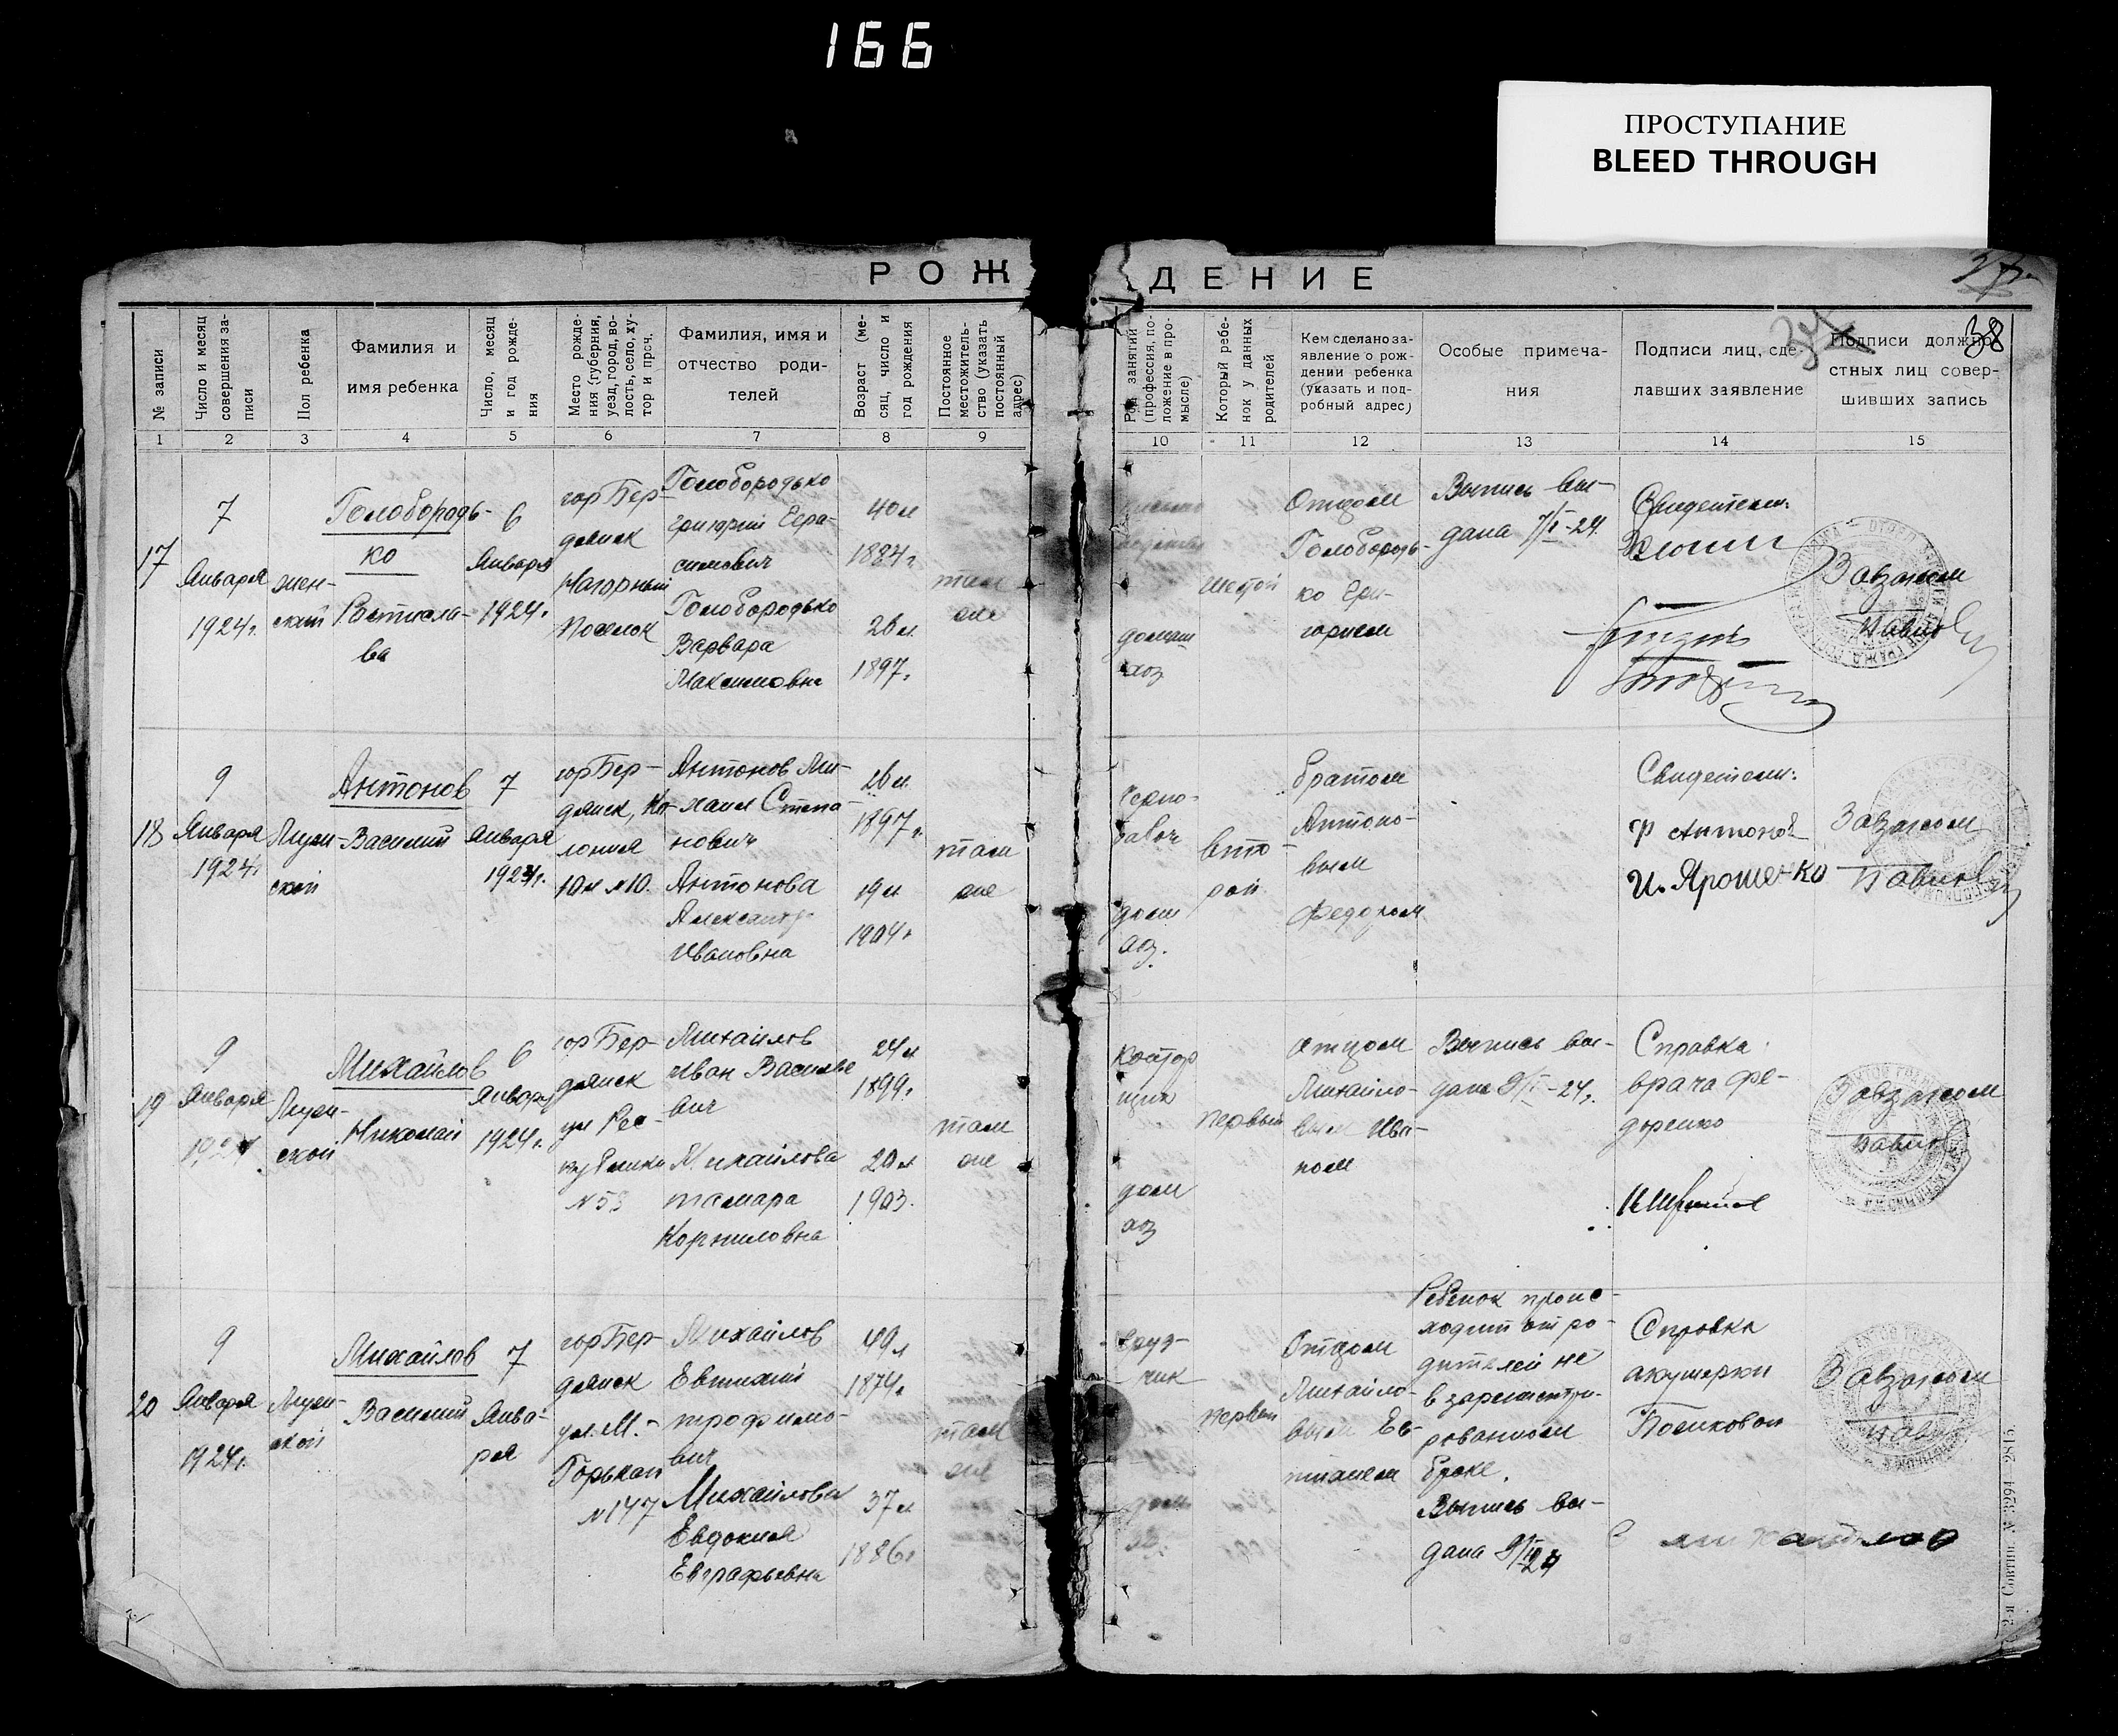 166
ПРОСТУПАНИЕ
BLEED THROUGH
РОЖДЕНИЕ
38
№ записи
Число и месяц совершения записи
Пол ребенка
Фамилия и
имя ребенка
Число, месяц и год рождения
Место рождения (губерния, уезд, город, волость, село, хутор и проч.
Фамилия, имя и
отчество роди-
телей
Возраст (месяц, число и год рождения
Постоянное местожительство (указать постоянный адрес)
Род занятий (профессия, положение в промысле)
Который ребенок у данных родителей
Кем сделано за-
явление о рож-
дении ребенка
(указать и под-
робный адрес)
Особые примеча-
ния
Подписи лиц, сде-
лавших заявление
Подписи должно-
стных лиц совер-
шивших запись
1 2 3 4 5 6 7 8 9 10 11 12 13 14 15
17
7
Января
1924г.
жен-
ский
Голобородь-
ко
Ростисла-
ва
6
Января
1924г.
гор Бер-
дянск
Нагорный
поселок
Голобородько
Григорий Гера-
симович
Голобородько
Варвара
Максимовна
40 л
1884г
26 л.
1897г
там
же
домаш
хоз
шестой
Отцом
Голобородь-
ко Гри-
горием
Выпись вы-
дана 7/I-24.
Свидетели:
Завзагсом
18
9
Января
1924г
Муж-
ской
Антонов
Василий
7
Января
1924г.
гор Бер-
дянск, Ко-
лония
10 л №10.
Антонов Ми-
хаил Степа-
нович
Антонова
Александр
Ивановна
26 л.
1897г.
19 л
1904г
там
же
черно-
рабоч
дом
хоз.
вто-
рой
братом
Антоно-
вым
Федором
Свидетели:
Ф Антонов
И. Ярошенко
Завзагсом
19
9
Января
1924
Муж-
ской
Михайлов
Николай
6
Январу
1924г.
гор Бер-
дянск
ул Рес-
публики
№53
Михайлов
Иван Василье
вич
Михайлова
тамара
Корниловна
24 л
1899г
20 л
1903.
там
же
контор
щик
дом
хоз
первый
отцом
Михайло-
вым Ива-
ном
Выпись вы-
дана 9/I-24г.
Справка
врача Фе-
доренко
Завзагсом
20
9
Января
1924г.
Муж-
ской
Михайлов
Василий
7
Янва-
ря
гор Бер-
дянск
ул. М.-
Горькой
№147
Михайлов
Евтихий
трофимо-
вич
Михайлова
Евдокия
Евграфьевна
49 л
1874г
37 л
1886г
там
же
первый
Отцом
Михайло-
вым Ев-
тихием
Ребенок проис-
ходит от ро-
дителей не
в зарегистри-
рованном
браке.
Выпись вы-
дана 9/I 24
Справка
акушерки
Поликовой
Михайлов
Завзагсом
2-я Совтип. № 3294—2815.